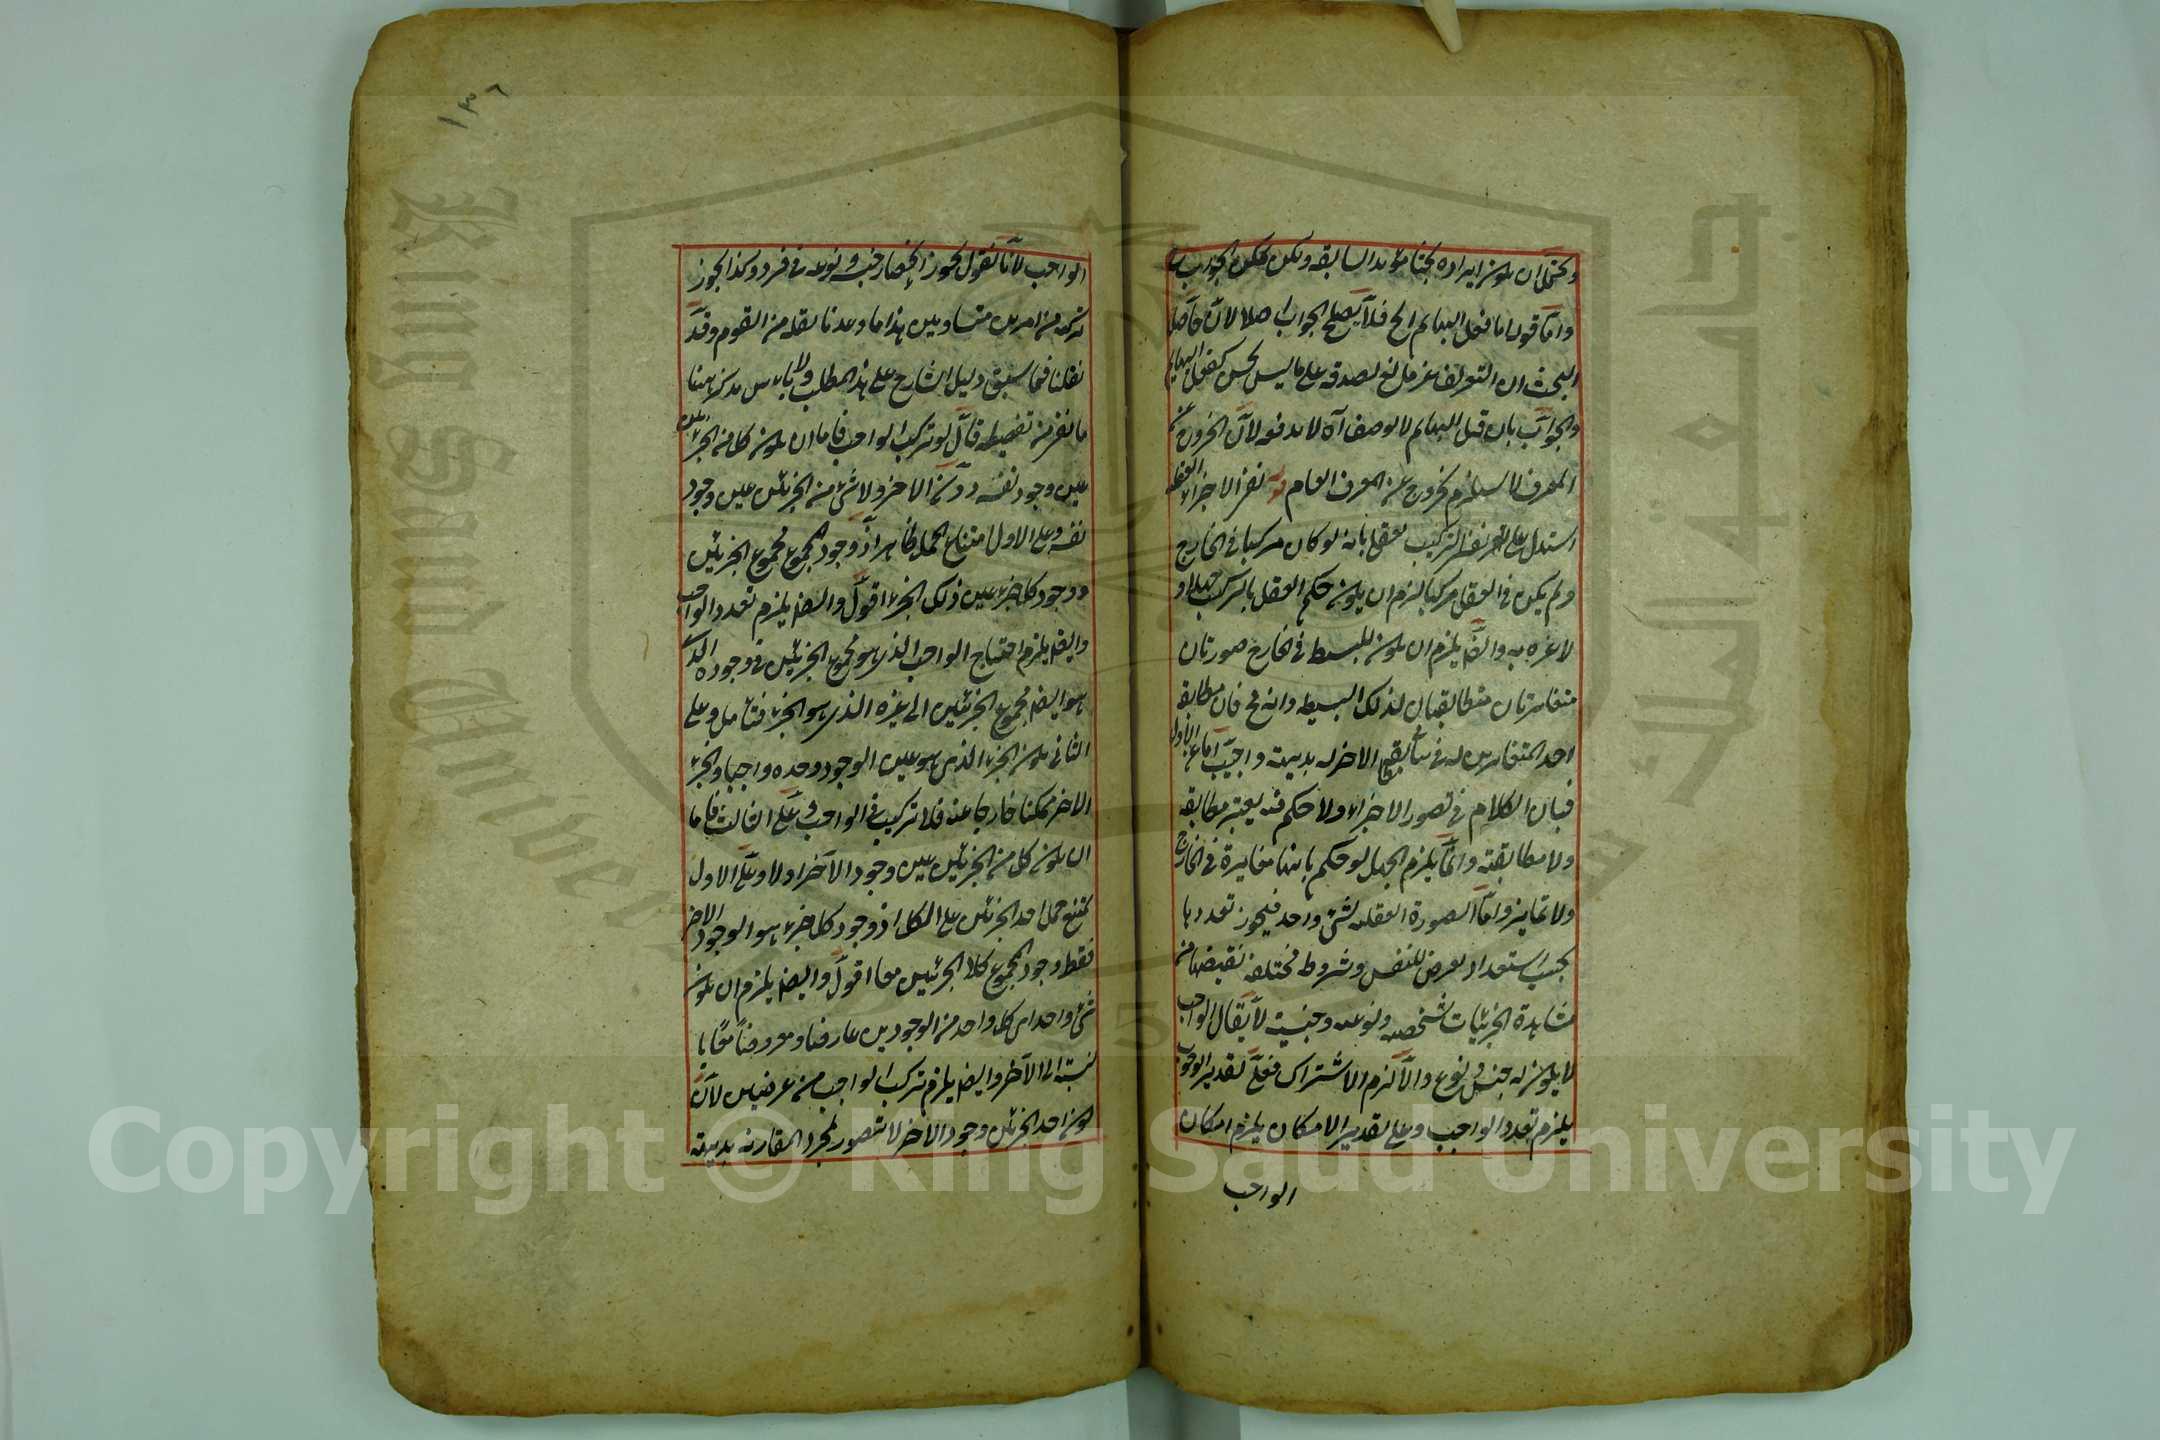 ويحتمل ان يكون ايراده بحثا مؤيدا لسابقه ولكن يمكن الجواب
واما قوله اما فعل البهايم الخ فلا يصلح الجواب اصلا لان حاصل
البحث ان التعريف غير مانع لصدقه على ما ليس بحسن كفعل البهايم
والجواب بان فعل البهايم لا يوصف آه لا يدفعه لان الخروج عن
المعرف لا يستلزم خروجه عن المعرف العام قوله
استدل على التركيب العقلي بانه لو كان مركبا في الخارج
ولم يكن في العقل مركبا لزم ان يكون حكم العقل بالتركيب جهلا و
لا عبرة به وايضا يلزم ان يكون للبسيط في الخارج صورتان
متغايرتان متطابقتان لذلك البسيط وانه مح فان مطابقة
احد المتغايرين له ينافي مطابقة الاخر له بديهة واجيب اما عن الاول
فبان الكلام في تصور الاجزاء ولا حكم فيه يعتبر مطابقته
ولا مطابقته وانما يلزم الجهل لو حكم بانها متغايرة في الخارج
ولا تمايز واما الصورة العقلية لشئ واحد فيجوز تعددها
بحسب استعداد يعرض للنفس وشروط مختلفة تقتضيها من
مشاهدة الجزئيات شخصية ونوعية وجنسية لا يقال الواجب
لا يكون له جنس ونوع والا لزم الاشتراك فعلى تقدير الوجوب
يلزم تعدد الواجب وعلى تقدير الامكان يلزم امكان
الواجب
١٣٦
الواجب لانا نقول يجوز انحصار جنسه ونوعه في فرد وكذا يجوز
تركبه من امرين متساويين هذا ما وعدنا نقله من القوم وقد
نقلنا فيما سبق دليل الشارح على هذا المطلب ولا باس بذكر هنا
تفصيله قال لو تركب الواجب فاما ان يكون كل من الجزئين
عين وجود نفسه دون الاخر ولا شئ من الجزئين عين وجود
نفسه وعلى الاول امتناع الحمل ظاهر اذ وجود المجموع مجموع الجزئين
ووجود كل جزء عين ذلك الجزء اقول وايضا يلزم تعدد الواجب
وايضا يلزم احتياج الواجب الذي هو مجموع الجزئين في وجوده الذي
هو ايضا مجموع الجزئين الى غيره الذي هو الجزء فتامل وعلى
الثاني يكون الجزء الذي هو عين الوجود وحده واجبا والجزء
الاخر ممكنا خارجا عنه فلا تركيب في الواجب وعلى الثالث فاما
ان يكون كل من الجزئين عين وجود الآخر اولا وعلى الاول
يمتنع حمل احد الجزئين على الكل اذ وجود كل جزء هو الوجود الاخر
فقط وجود المجموع كلا الجزئين معا اقول وايضا يلزم ان يكون
شئ واحد اي كل واحد من الوجودين عارضا ومعروضا معا با
لنسبة الى الآخر وايضا يلزم تركب الواجب من عرضين لان
كون احد الجزئين وجود الاخر لا يتصور لمجرد المقارنة بديهة